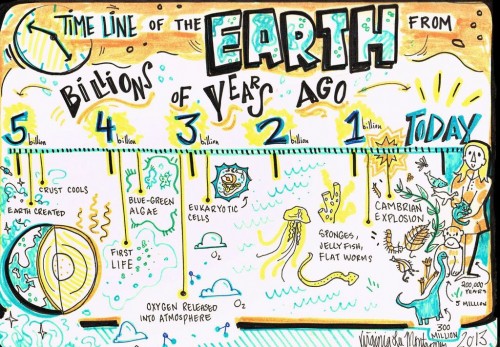 TIME LINE OF THE EARTH FROM
BILLIONS OF YEARS AGO
5 billion 4 billion 3 billion 2 billion 1 billion TODAY
CRUST COOLS
EARTH CREATED
BLUE-GREEN
ALGAE
FIRST
LIFE
EUKARYOTIC
CELLS
OXYGEN RELEASED
INTO ATMOSPHERE
O₂
O₂
SPONGES,
JELLY FISH,
FLAT WORMS
CAMBRIAN
EXPLOSION
200,000
YEARS
MILLION
300
MILLION
2013